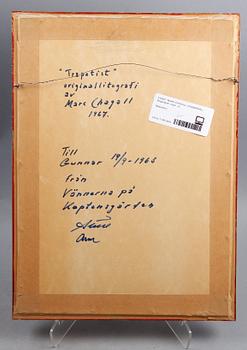 "Trapetist"
originallitografi
av
Marc Chagall
1967.
Till
Gunnar 19/9-1968
från
Vännerna på
Kaptensgården